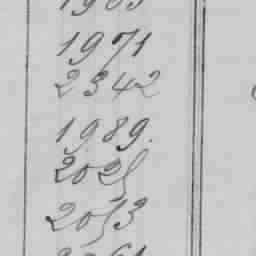 1971
2342
1989.
2025
2053